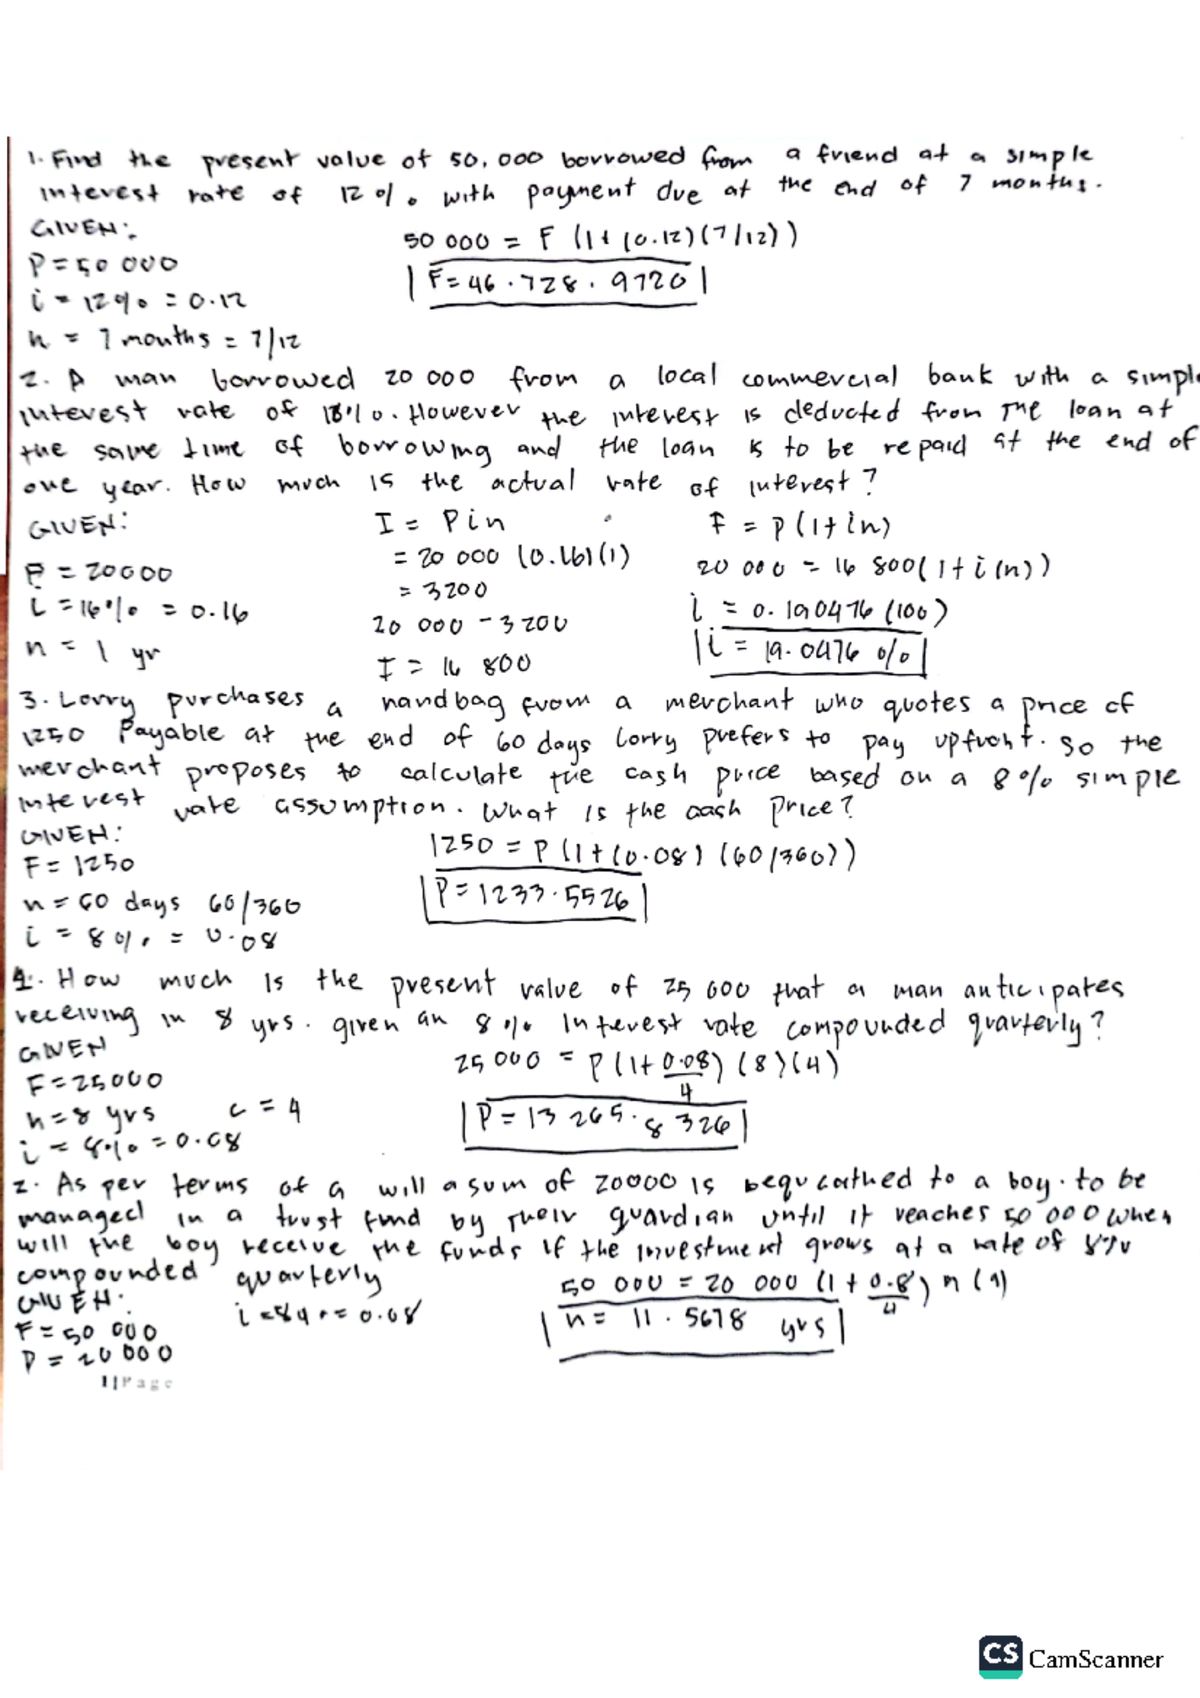 1. Find the present value of 50,000 borrowed from a friend at a simple
interest rate of 12 % with payment due at the end of 7 months.
GIVEN:
50 000 = F (1 + (0.12)(7/12))
P = 50 000
F = 46.728.9720
i = 12% = 0.12
n = 7 months = 7/12
2. A man borrowed 20 000 from a local commercial bank with a simple
interest rate of 16%. However the interest is deducted from the loan at
the same time of borrowing and the loan is to be repaid at the end of
one year. How much is the actual rate of interest?
GIVEN: I = Pin F = P(1+in)
= 20 000 (0.16)(1) 20 000 = 16 800(1+i(n))
P = 20000
= 3200
i = 16% = 0.16 i = 0.190476 (100)
20 000 - 3200
n = 1 yr I = 16 800 i = 19.0476 %
3. Lorry purchases a handbag from a merchant who quotes a price of
1250 Payable at the end of 60 days Lorry prefers to pay upfront. So the
merchant proposes to calculate the cash price based on a 8% simple
interest rate assumption. What is the cash price?
GIVEN:
1250 = P (1+(0.08) (60/360))
F = 1250
P = 1233.5526
n = 60 days 60/360
i = 8% = 0.08
4. How much is the present value of 25 000 that a man anticipates
receiving in 8 yrs. given an 8% interest rate compounded quarterly?
GIVEN
25 000 = P (1+ 0.08/4) (8)(4)
F = 25000
n = 8 yrs c = 4
P = 13 265.8326
i = 8% = 0.08
2. As per terms of a will a sum of 20000 is bequeathed to a boy. to be
managed in a trust fund by their guardian until it reaches 50 000 when
will the boy receive the funds if the investment grows at a rate of 8%
compounded quarterly
GIVEN: i = 8% = 0.08
50 000 = 20 000 (1 + 0.8/4) n (4)
F = 50 000
n = 11.5678 yrs
P = 20 000
1|Page
CS CamScanner